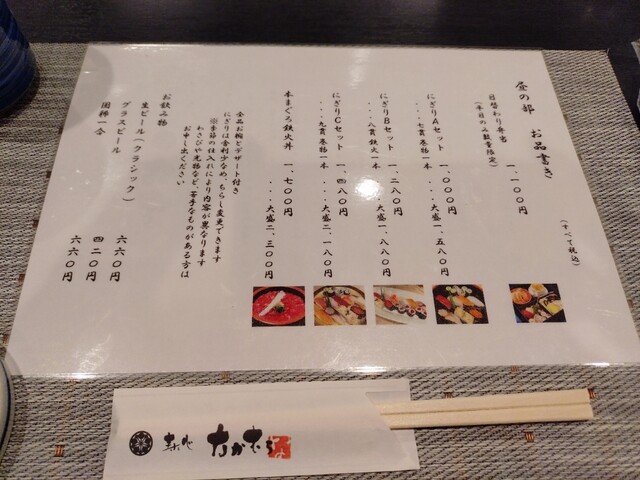 昼の部 お品書き
(すべて税込)
日替わり弁当 一、一〇〇円
(平日のみ数量限定)
にぎりAセット 一、〇〇〇円
・・・七貫 巻物一本 ・・・大盛一、五八〇円
にぎりBセット 一、二八〇円
・・・八貫 鉄火一本 ・・・大盛一、八八〇円
にぎりCセット 一、四八〇円
・・・九貫 巻物一本 ・・・大盛二、一八〇円
本まぐろ鉄火丼 一、七〇〇円
・・・大盛二、三〇〇円
全品お椀とデザート付き
にぎりは舎利少なめ、ちらし変更できます
※季節の仕入れにより内容が異なります
わさびや光物など、苦手なものがある方は
お申し出ください
お飲み物
生ビール(クラシック) 六六〇円
グラスビール 四二〇円
国稀一合 六六〇円
たかむら